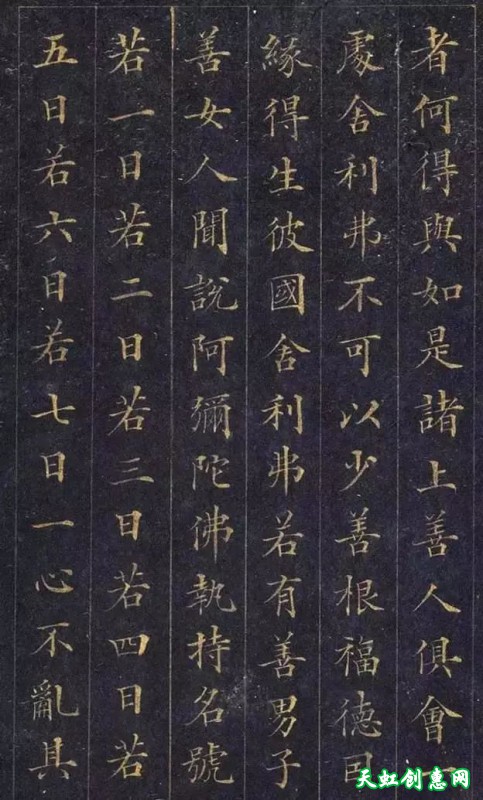 者何得與如是諸上善人俱會一
處舍利弗不可以少善根福德因
緣得生彼國舍利弗若有善男子
善女人聞說阿彌陀佛執持名號
若一日若二日若三日若四日若
五日若六日若七日一心不亂其
天虹创意网